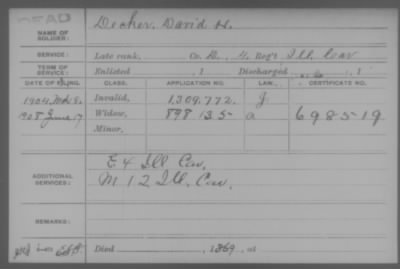 DEAD
NAME OF SOLDIER: Decker, David H.
SERVICE: Late rank, Co. D, 4 Reg't Ill. Cav
TERM OF SERVICE: Enlisted , 1 Discharged , 1
DATE OF FILING. CLASS. APPLICATION NO. LAW. CERTIFICATE NO.
1904, Mch 8. Invalid, 1,309,772. J
1908 June 17 Widow, 898135 a 698519
Minor,
ADDITIONAL SERVICES: E 4 Ill Cav,
M 12 Ill. Cav.
REMARKS:
Died , 1869, at